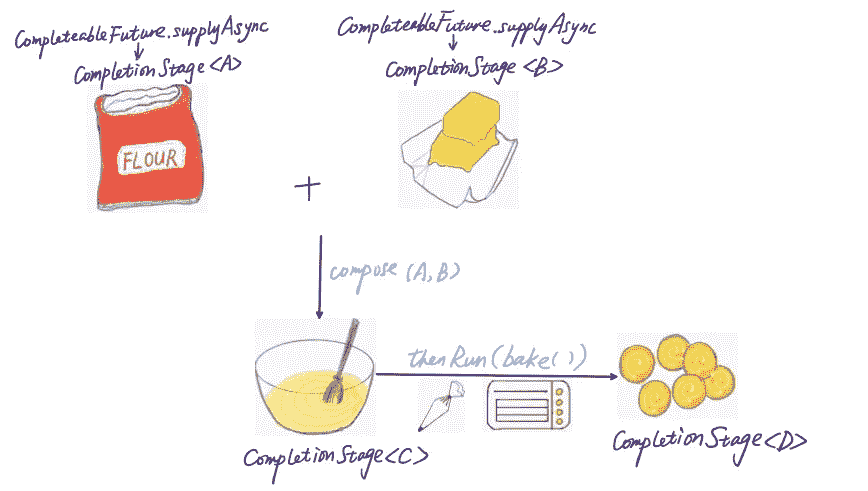 CompleteableFuture.supplyAsync
CompletionStage <A>
FLOUR
CompleteableFuture.supplyAsync
CompletionStage <B>
+
compose (A,B)
thenRun(bake())
CompletionStage<C>
CompletionStage<D>